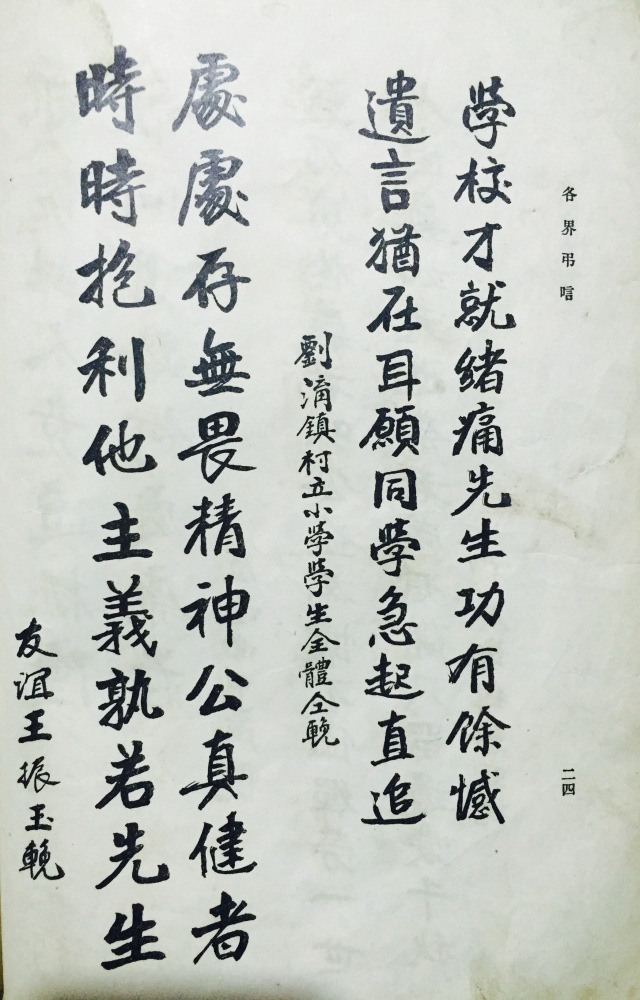 各界弔唁
二四
學校才就緒痛先生功有餘憾
遺言猶在耳願同學急起直追
劉濟鎮村立小學學生全體仝輓
處處存無畏精神公真健者
時時抱利他主義孰若先生
友誼王振玉輓